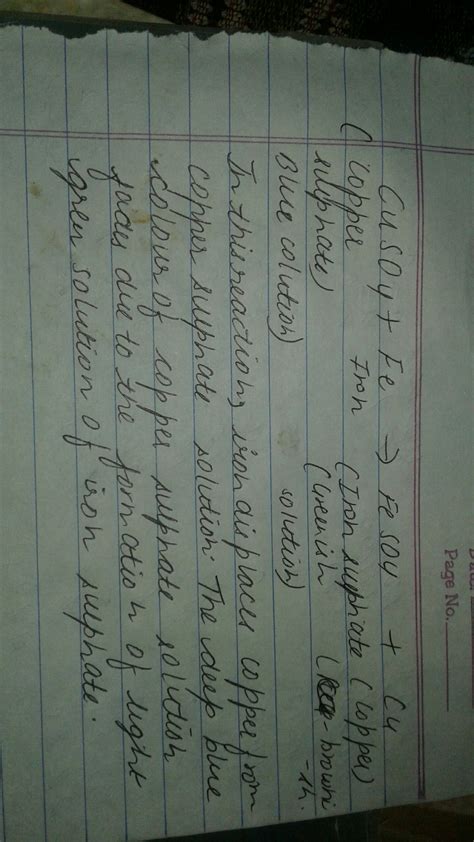 Page No.
CuSO4 + Fe → FeSO4 + Cu
(copper Iron (Iron sulphate (copper)
sulphate) (Greenish ( - browni
Blue solution) solution) -sh.
In this reaction, iron displaces copper from
copper sulphate solution. The deep blue
colour of copper sulphate solution
fades due to the formation of light
green solution of iron sulphate.